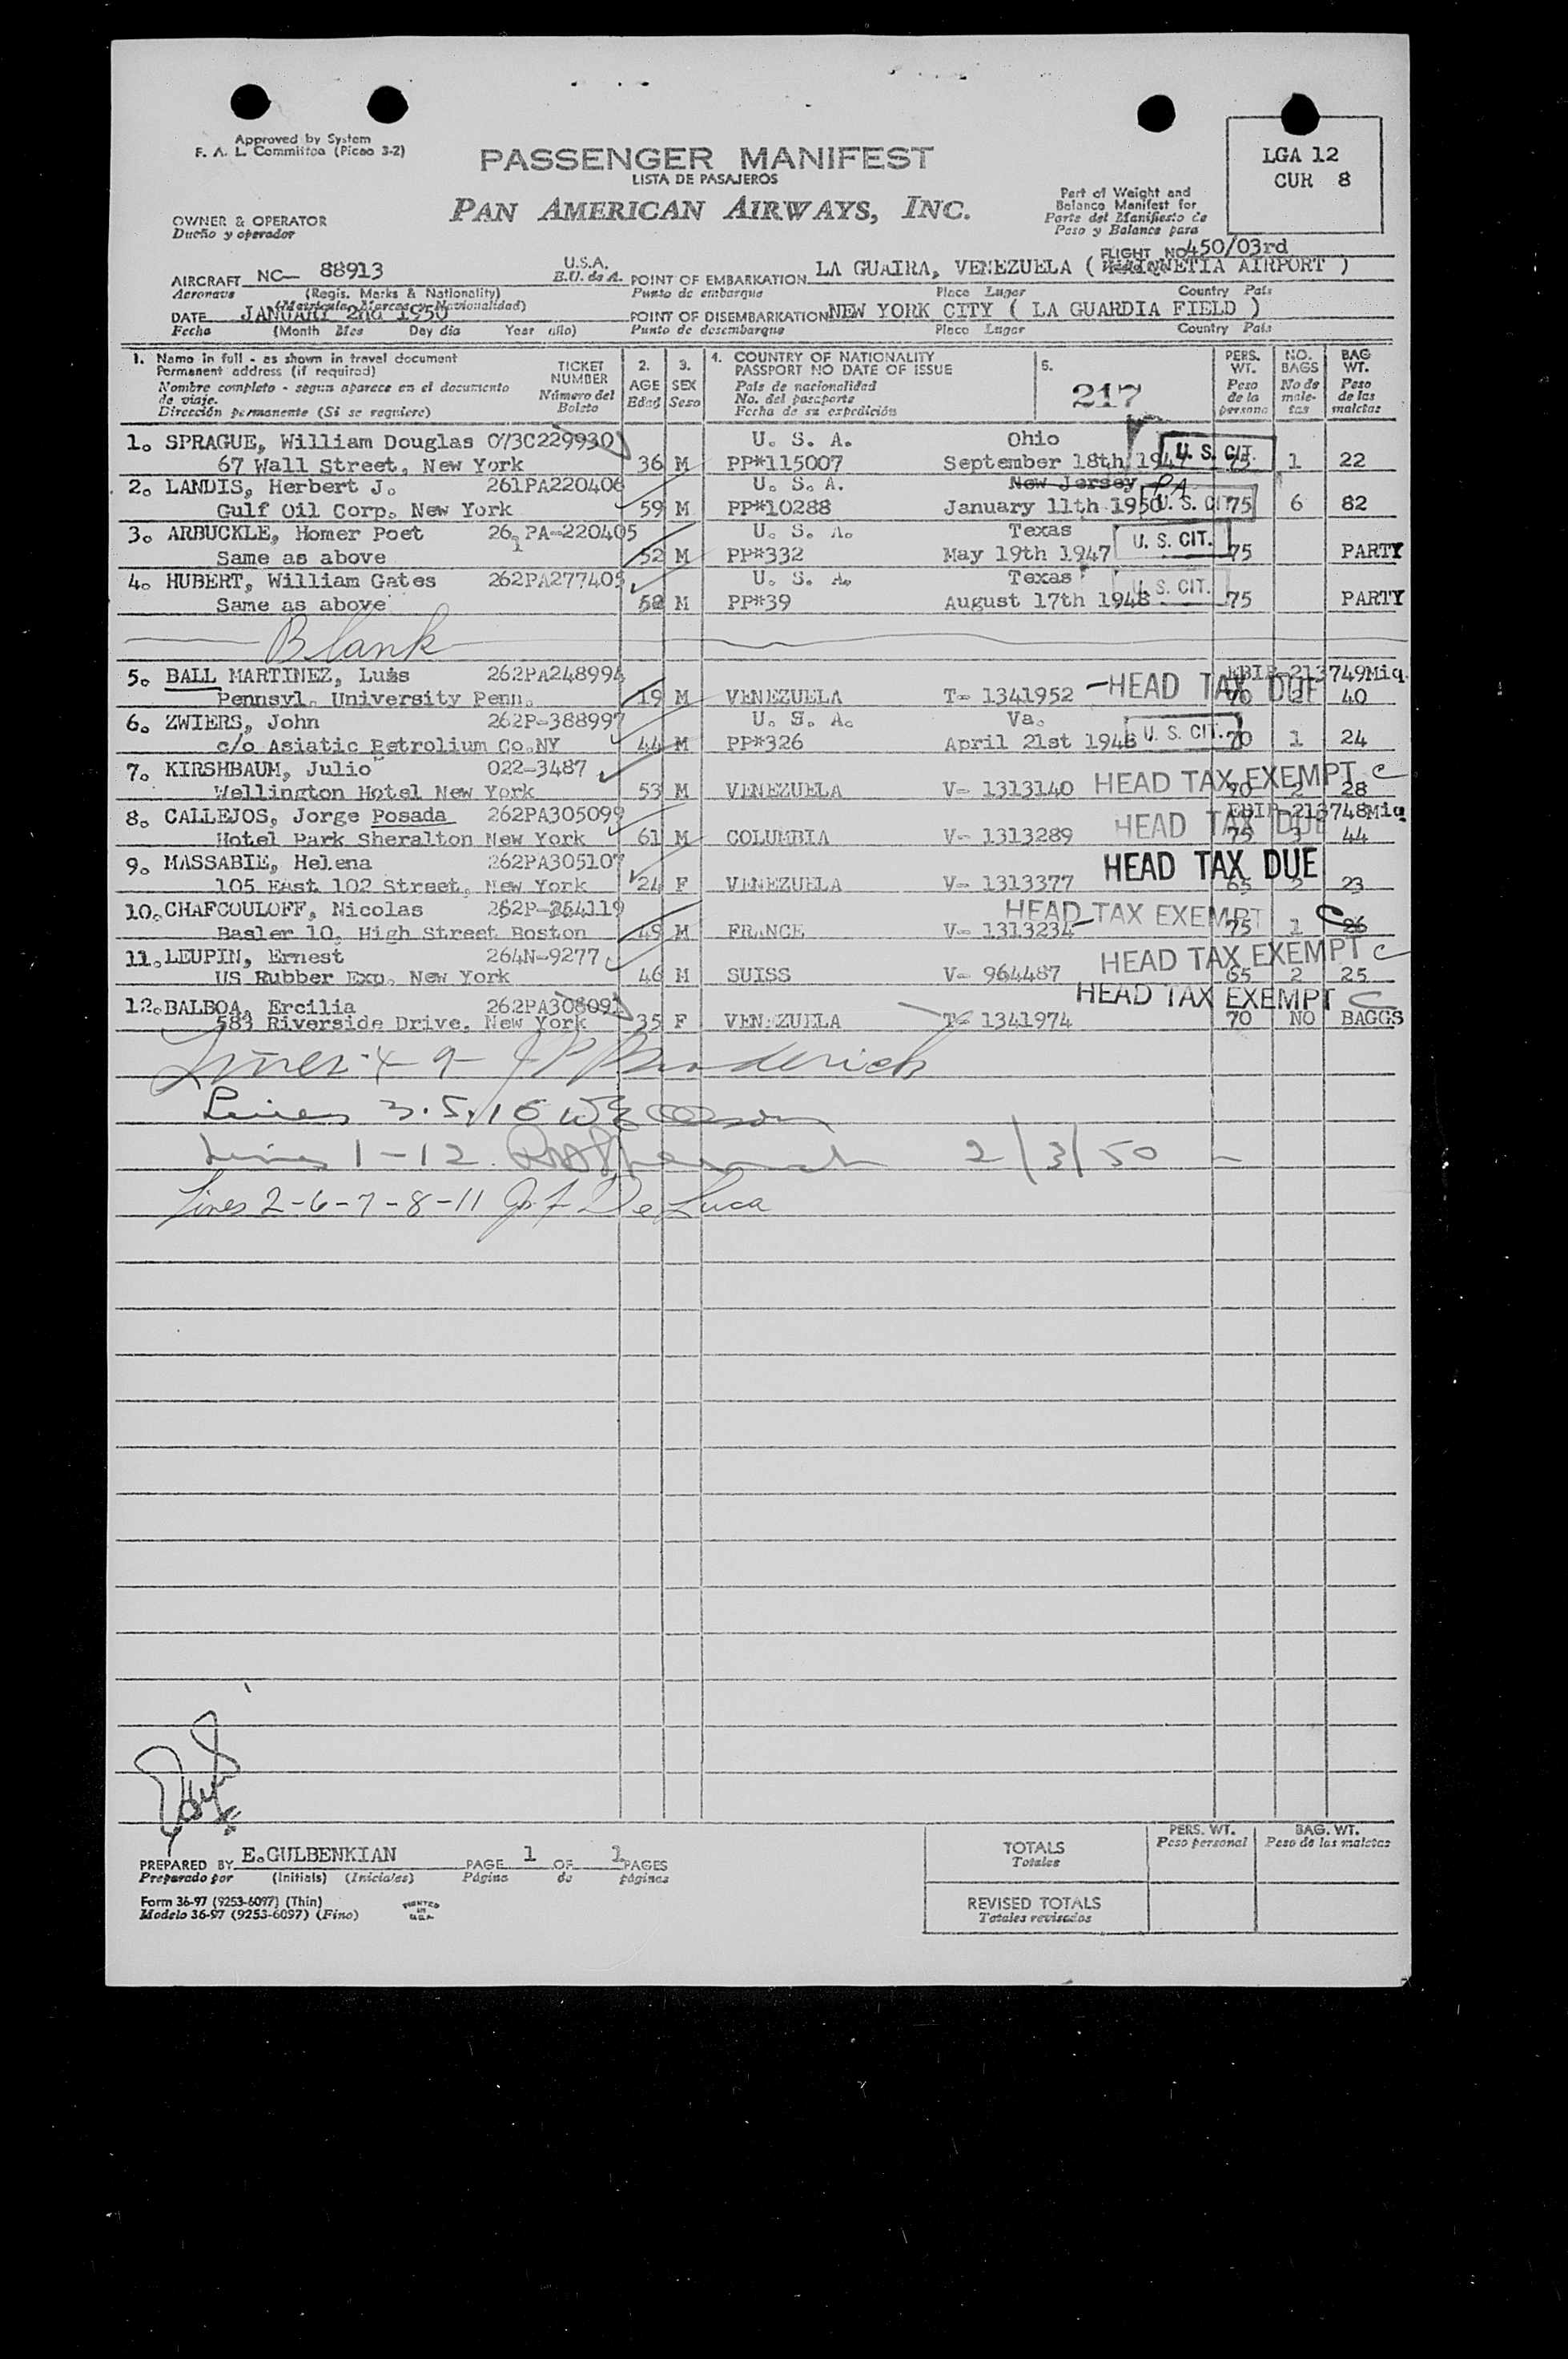 Approved by System
F. A. L. Committee (Picao 3-2)
PASSENGER MANIFEST
LISTA DE PASAJEROS
PAN AMERICAN AIRWAYS, INC.
LGA 12
CUR 8
Part of Weight and
Balance Manifest for
Parte del Manifiesto de
Peso y Balance para
OWNER & OPERATOR
Dueño y operador
FLIGHT NO 450/03rd
AIRCRAFT NC— 88913 U.S.A. E.U. de A. POINT OF EMBARKATION LA GUAIRA, VENEZUELA ( AIRPORT )
Aeronave (Regis. Marks & Nationality) Punto de embarque Place Lugar Country País
(Matricula, Marcas y Nacionalidad)
DATE JANUARY 2nd 1950 POINT OF DISEMBARKATION NEW YORK CITY ( LA GUARDIA FIELD )
Fecha (Month Mes Day dia Year año) Punto de desembarque Place Lugar Country País
1. Name in full - as shown in travel document
Permanent address (if required)
Nombre completo - segun aparece en el documento
de viaje.
Dirección permanente (Si se requiere)
TICKET
NUMBER
Número del
Boleto
2.
AGE
Edad
3.
SEX
Sexo
4. COUNTRY OF NATIONALITY
PASSPORT NO DATE OF ISSUE
País de nacionalidad
No. del pasaporte
Fecha de su expedición
5.
217
PERS.
WT.
Peso
de la
persona
NO.
BAGS
No de
male-
tas
BAG
WT.
Peso
de las
maletas
1. SPRAGUE, William Douglas 073C229930 U. S. A. Ohio
67 Wall Street, New York 36 M PP*115007 September 18th 1947 U. S. CIT. 1 22
2. LANDIS, Herbert J. 261PA220406 U. S. A. New Jersey PA
Gulf Oil Corp. New York 59 M PP*10288 January 11th 1950 U. S. CIT. 75 6 82
3. ARBUCKLE, Homer Poet 261PA-220405 U. S. A. Texas
Same as above 52 M PP*332 May 19th 1947 U. S. CIT. 75 PARTY
4. HUBERT, William Gates 262PA277405 U. S. A. Texas
Same as above M PP*39 August 17th 1948 U. S. CIT. 75 PARTY
Blank
5. BALL MARTINEZ, Luis 262PA248994 EBIP 213749Miq.
Pennsyl. University Penn. 19 M VENEZUELA T- 1341952 HEAD TAX DUE 70 2 40
6. ZWIERS, John 262P-388997 U. S. A. Va.
c/o Asiatic Petrolium Co.NY 44 M PP*326 April 21st 1948 U. S. CIT. 70 1 24
7. KIRSHBAUM, Julio 022-3487
Wellington Hotel New York 53 M VENEZUELA V- 1313140 HEAD TAX EXEMPT C 70 2 28
8. CALLEJOS, Jorge Posada 262PA305099 EBIP 213748Miq
Hotel Park Sheralton New York 61 M COLUMBIA V- 1313289 HEAD TAX DUE 75 3 44
9. MASSABIE, Helena 262PA305107
105 East 102 Street, New York 24 F VENEZUELA V- 1313377 HEAD TAX DUE 65 2 23
10. CHAFCOULOFF, Nicolas 262P-264119
Basler 10, High Street Boston 49 M FRANCE V- 1313234 HEAD TAX EXEMPT C 75 1 26
11. LEUPIN, Ernest 264N-9277
US Rubber Exp. New York 46 M SUISS V- 964487 HEAD TAX EXEMPT C 65 2 25
12. BALBOA, Ercilia 262PA308092 HEAD TAX EXEMPT C
583 Riverside Drive, New York 35 F VENEZUELA T- 1341974 70 NO BAGGS
Lines 4-9
Lines 3.5.10
Lines 1-12 2/3/50
Lines 2-6-7-8-11 De Luca
PREPARED BY E.GULBENKIAN PAGE 1 OF 1 PAGES
Preparado por (Initials) (Iniciales) Página de páginas
Form 36-97 (9253-6097) (Thin)
Modelo 36-97 (9253-6097) (Fino)
PRINTED
IN
U.S.A.
PERS. WT.
Peso personal
BAG. WT.
Peso de las maletas
TOTALS
Totales
REVISED TOTALS
Totales revisados